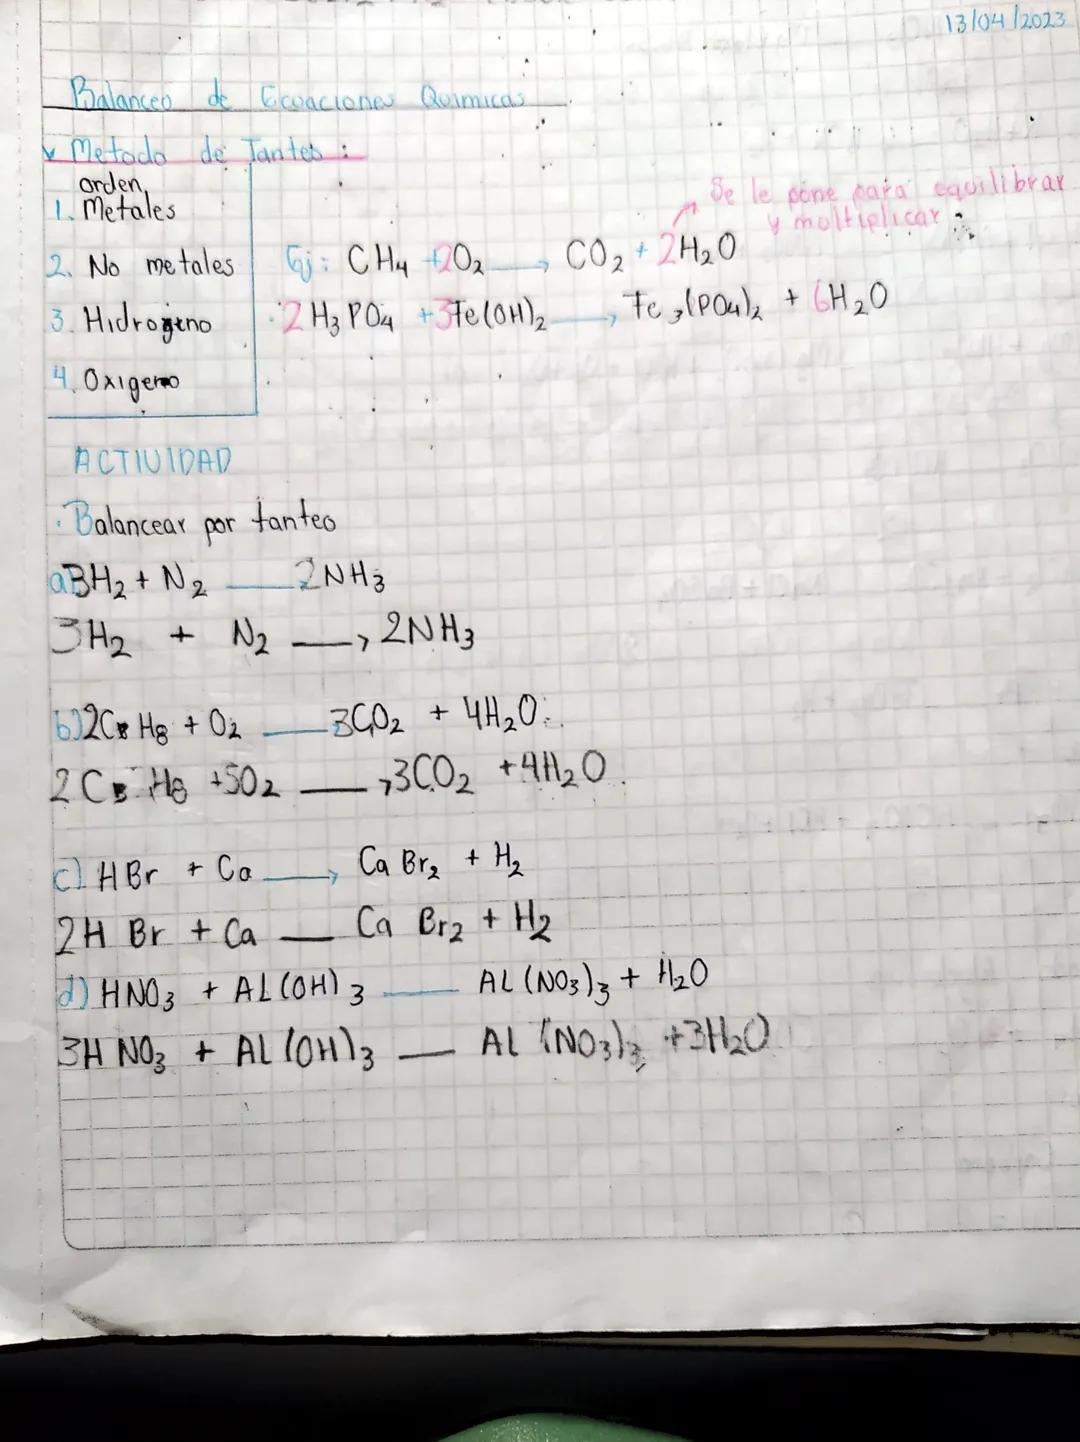 13/04/2023
Balanceo de Ecuaciones Quimicas
Metodo de Tanteo:
orden
1. Metales
Se le pone para equilibrar
y multiplicar
2. No metales
Ej: CH₄ + 2O₂ → CO₂ + 2H₂O
3. Hidrogeno
2H₃PO₄ + 3Fe(OH)₂ → Fe₃(PO₄)₂ + 6H₂O
4. Oxigeno
ACTIVIDAD
· Balancear por tanteo
a) 3H₂ + N₂ — 2NH₃
3H₂ + N₂ → 2NH₃
b) 2C H₈ + O₂ — 3CO₂ + 4H₂O
2C H₈ + 5O₂ → 3CO₂ + 4H₂O.
c) HBr + Ca → Ca Br₂ + H₂
2H Br + Ca — Ca Br₂ + H₂
d) HNO₃ + AL(OH)₃ — AL(NO₃)₃ + H₂O
3H NO₃ + AL(OH)₃ — AL(NO₃)₃ + 3H₂O